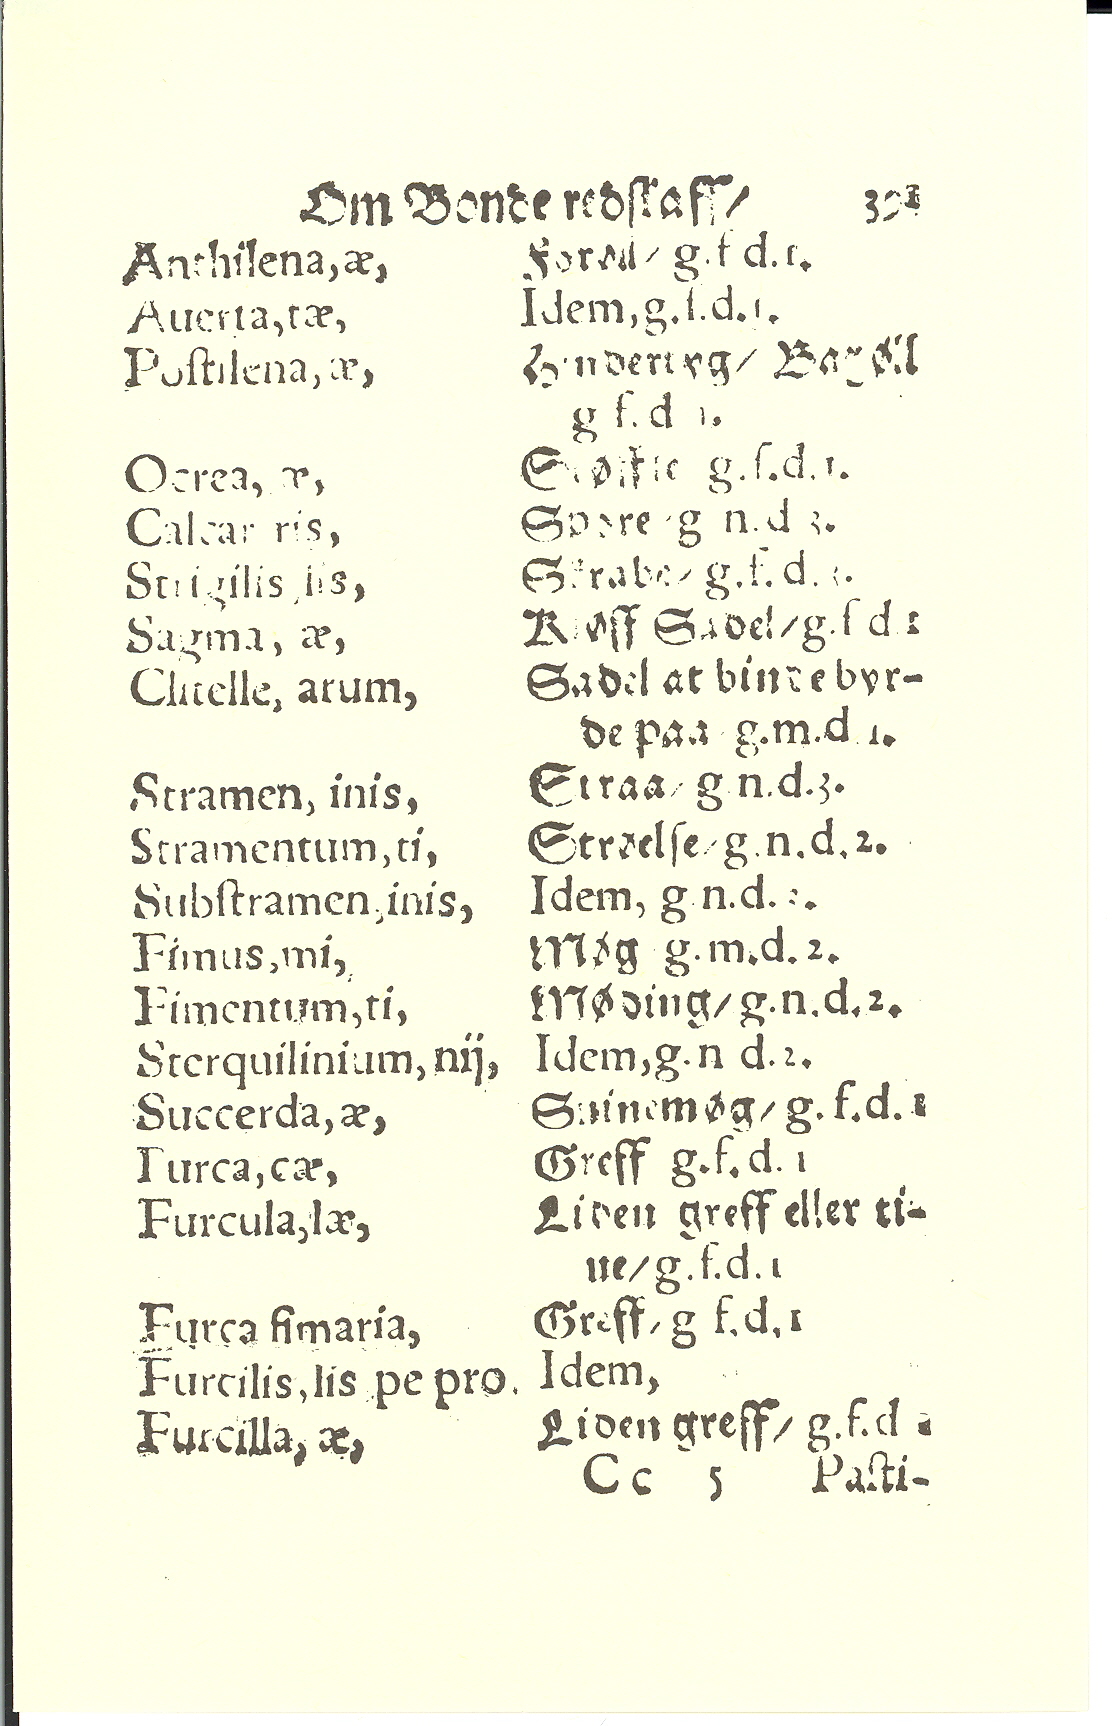 Om Bonde redskaff/ 391
Anthilena, æ, g. f d. 1.
Auerta, tæ, Idem, g. f. d. 1.
Postilena, æ,
g f. d 1.
Ocrea, æ, g. f. d. 1.
Calcar ris, Spore g n. d 3.
Strigilis lis, Skrabe/ g. f. d. 3.
Sagma, æ, Kløff Sadel/ g. f d 1
Clitelle, arum, Sadel at binde byr-
de paa g. m. d 1.
Stramen, inis, Straa/ g n. d. 3.
Stramentum, ti, Strøelse/ g. n. d. 2.
Substramen, inis, Idem, g n. d. 3.
Fimus, mi, Møg g. m. d. 2.
Fimentum, ti, Møding/ g. n. d. 2.
Sterquilinium, nij, Idem, g. n d. 2.
Succerda, æ, Suinemøg/ g. f. d. 1
Furca, cæ, Greff g. f. d. 1
Furcula, læ, Liden greff eller ti-
ue/ g. f. d. 1
Furca fimaria, Greff/ g f. d. 1
Furcilis, lis pe pro. Idem,
Furcilla, æ, Liden greff/ g. f. d 1
Cc 5 Pasti-